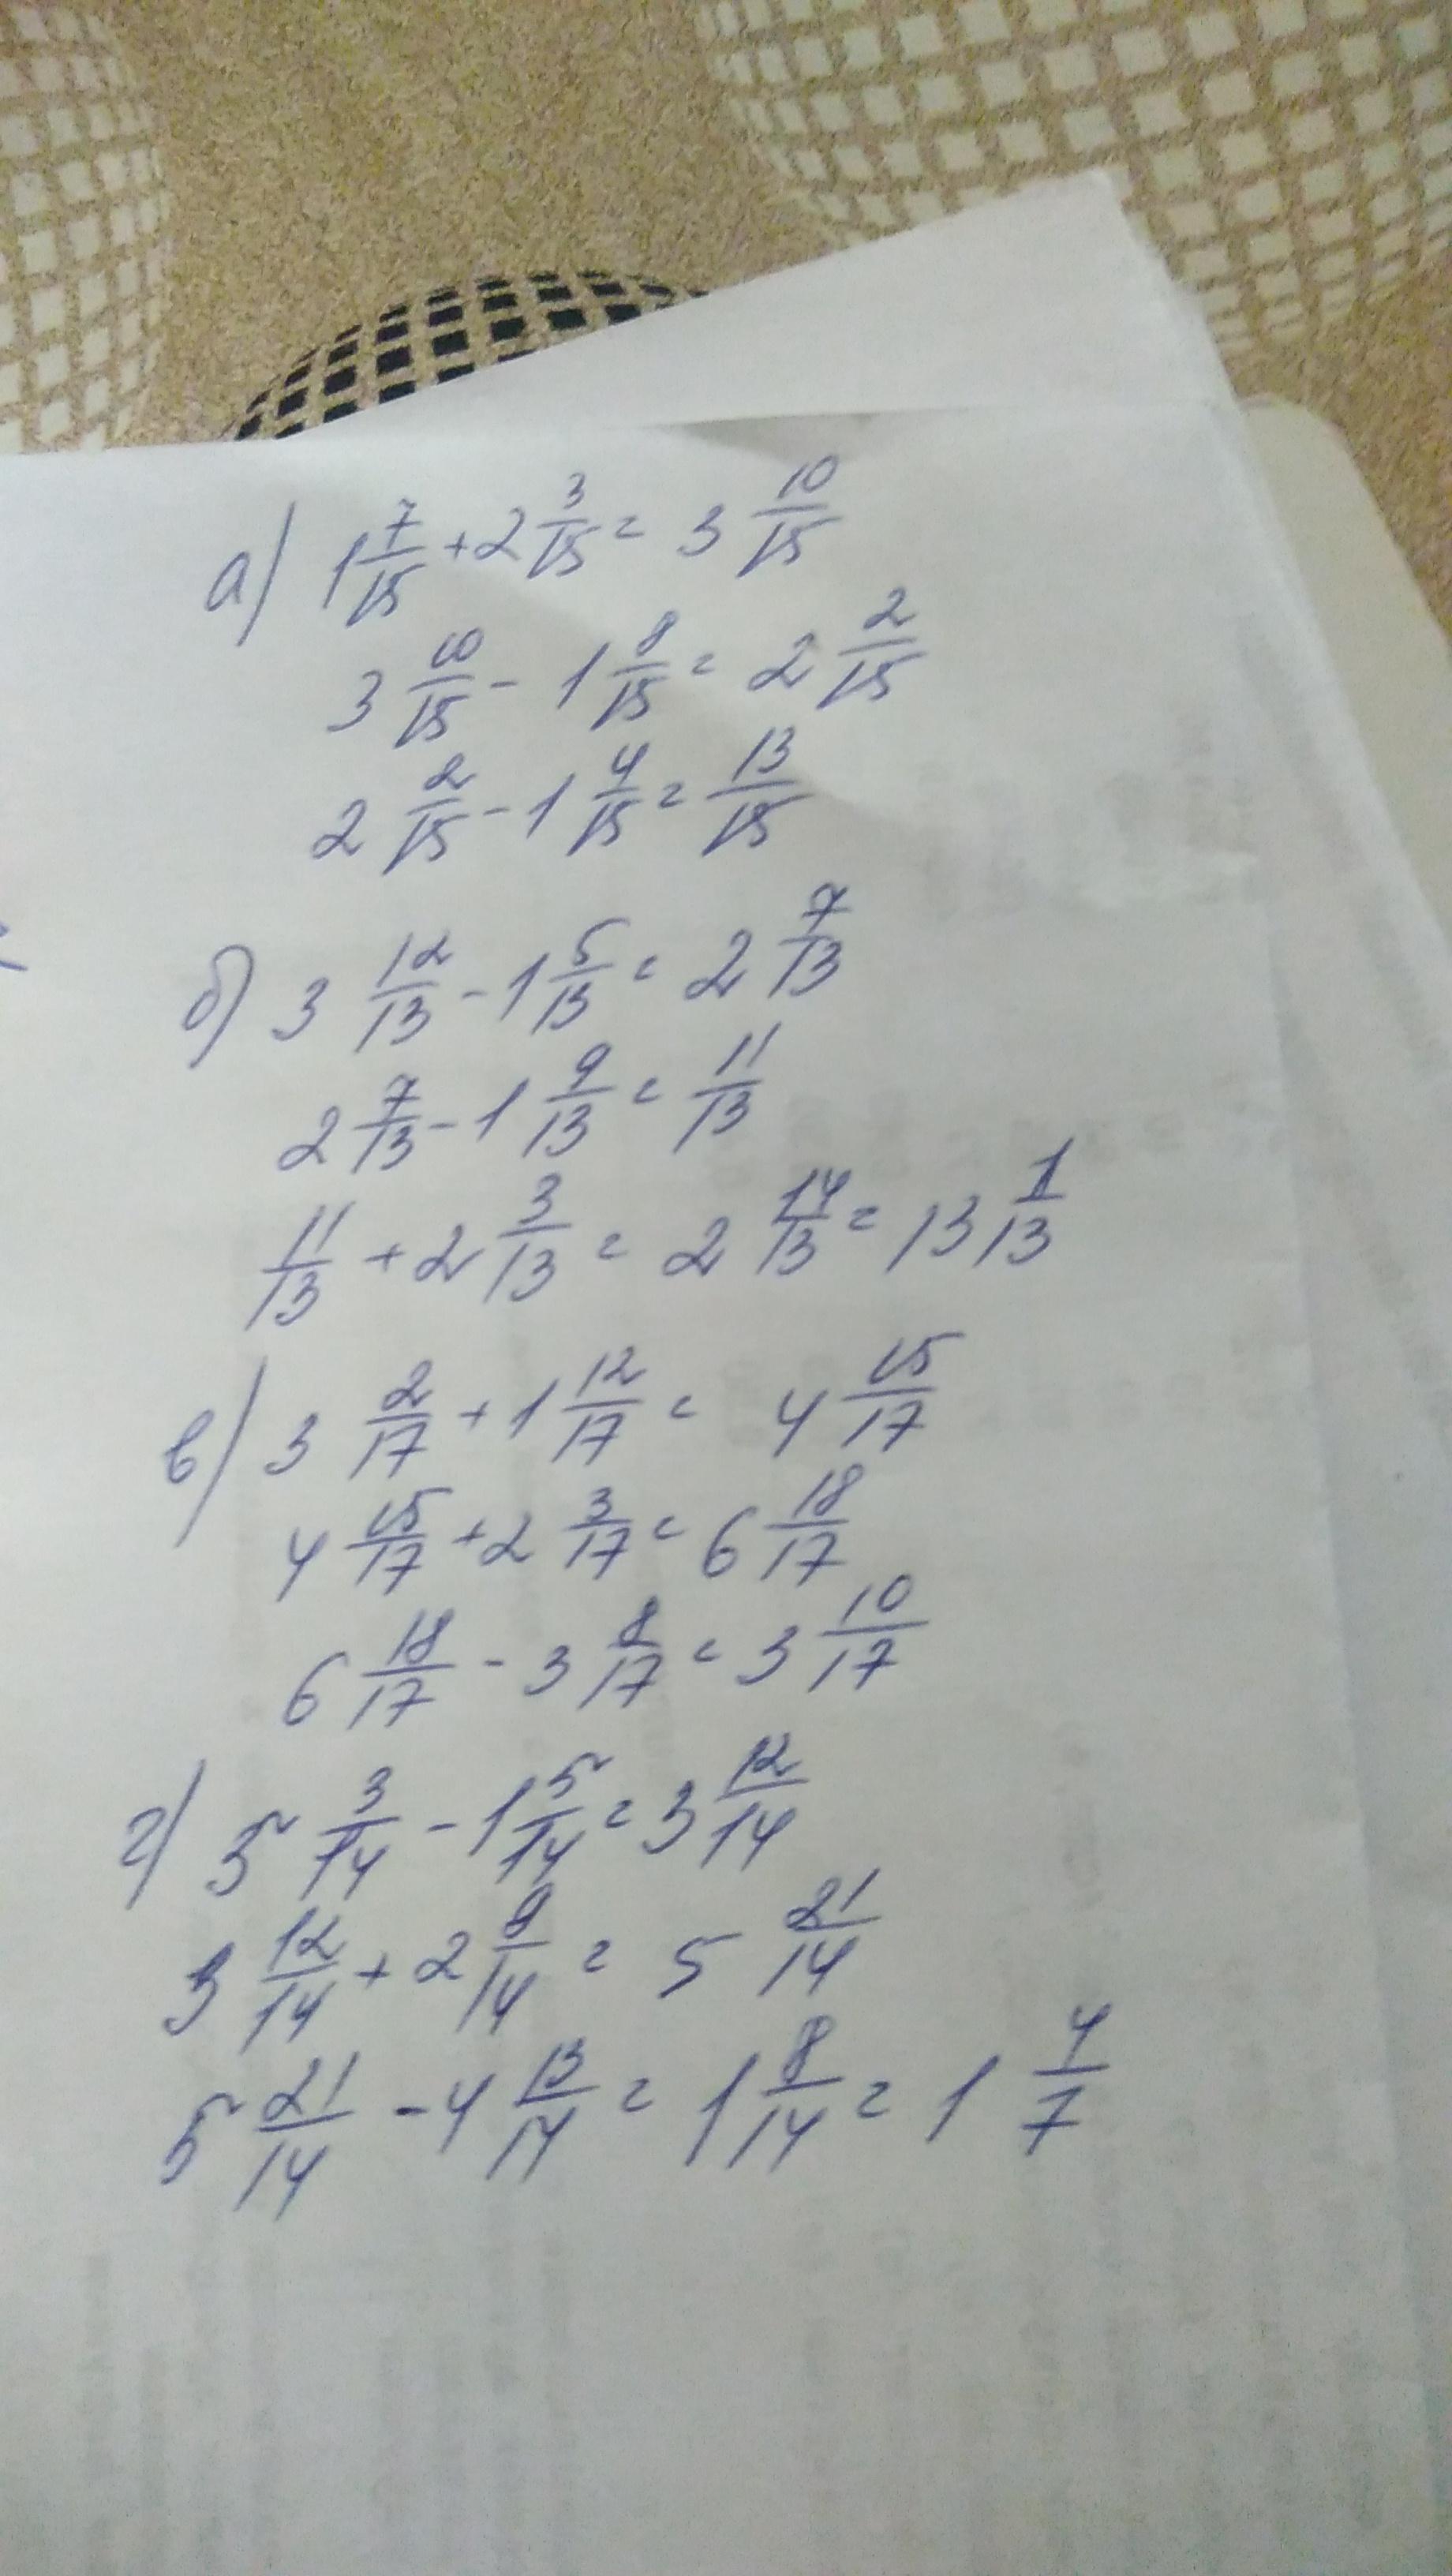 а) 1 7/15 + 2 3/15 = 3 10/15
3 10/15 - 1 8/15 = 2 2/15
2 2/15 - 1 4/15 = 13/15
б) 3 12/13 - 1 5/13 = 2 7/13
2 7/13 - 1 9/13 = 11/13
11/13 + 2 3/13 = 2 14/13 = 13 1/13
в) 3 2/17 + 1 12/17 = 4 15/17
4 15/17 + 2 3/17 = 6 18/17
6 18/17 - 3 8/17 = 3 10/17
г) 5 3/14 - 1 5/14 = 3 12/14
3 12/14 + 2 9/14 = 5 21/14
5 21/14 - 4 13/14 = 1 8/14 = 1 4/7